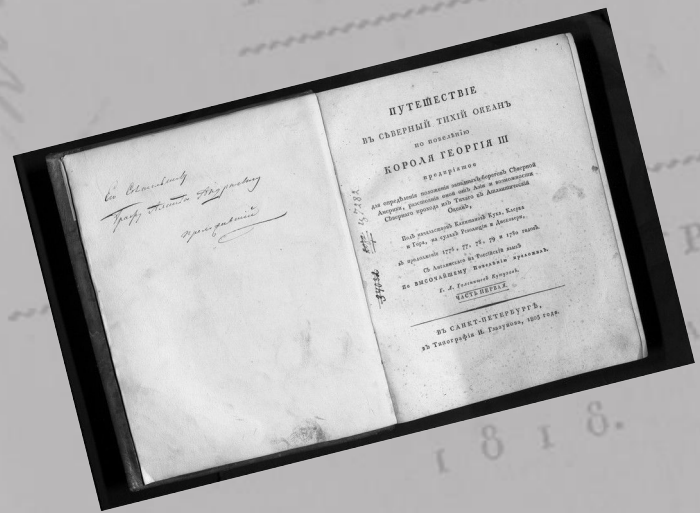 Его Сіятельству
Графу
ПУТЕШЕСТВІЕ
ВЪ СѢВЕРНЫЙ ТИХІЙ ОКЕАНЪ
по повелѣнію
КОРОЛЯ ГЕОРГІЯ III
предпріятое
для опредѣленія положенія западныхъ береговъ Сѣверной
Америки, разстоянія оной отъ Азіи и возможности
Сѣвернаго прохода изъ Тихаго въ Атлантическій
Океанъ,
Подъ начальствомъ Капитановъ Кука, Клерка
и Гора, на судахъ Резолюціи и Дисковери,
въ продолженіе 1776, 77, 78, 79 и 1780 годовъ.
Съ Англинскаго на Россійскій языкъ
По ВЫСОЧАЙШЕМУ Повелѣнію преложилъ
ЧАСТЬ ПЕРВАЯ.
ВЪ САНКТ-ПЕТЕРБУРГѢ,
въ Типографіи И. Глазунова, 1805 года.
1818.